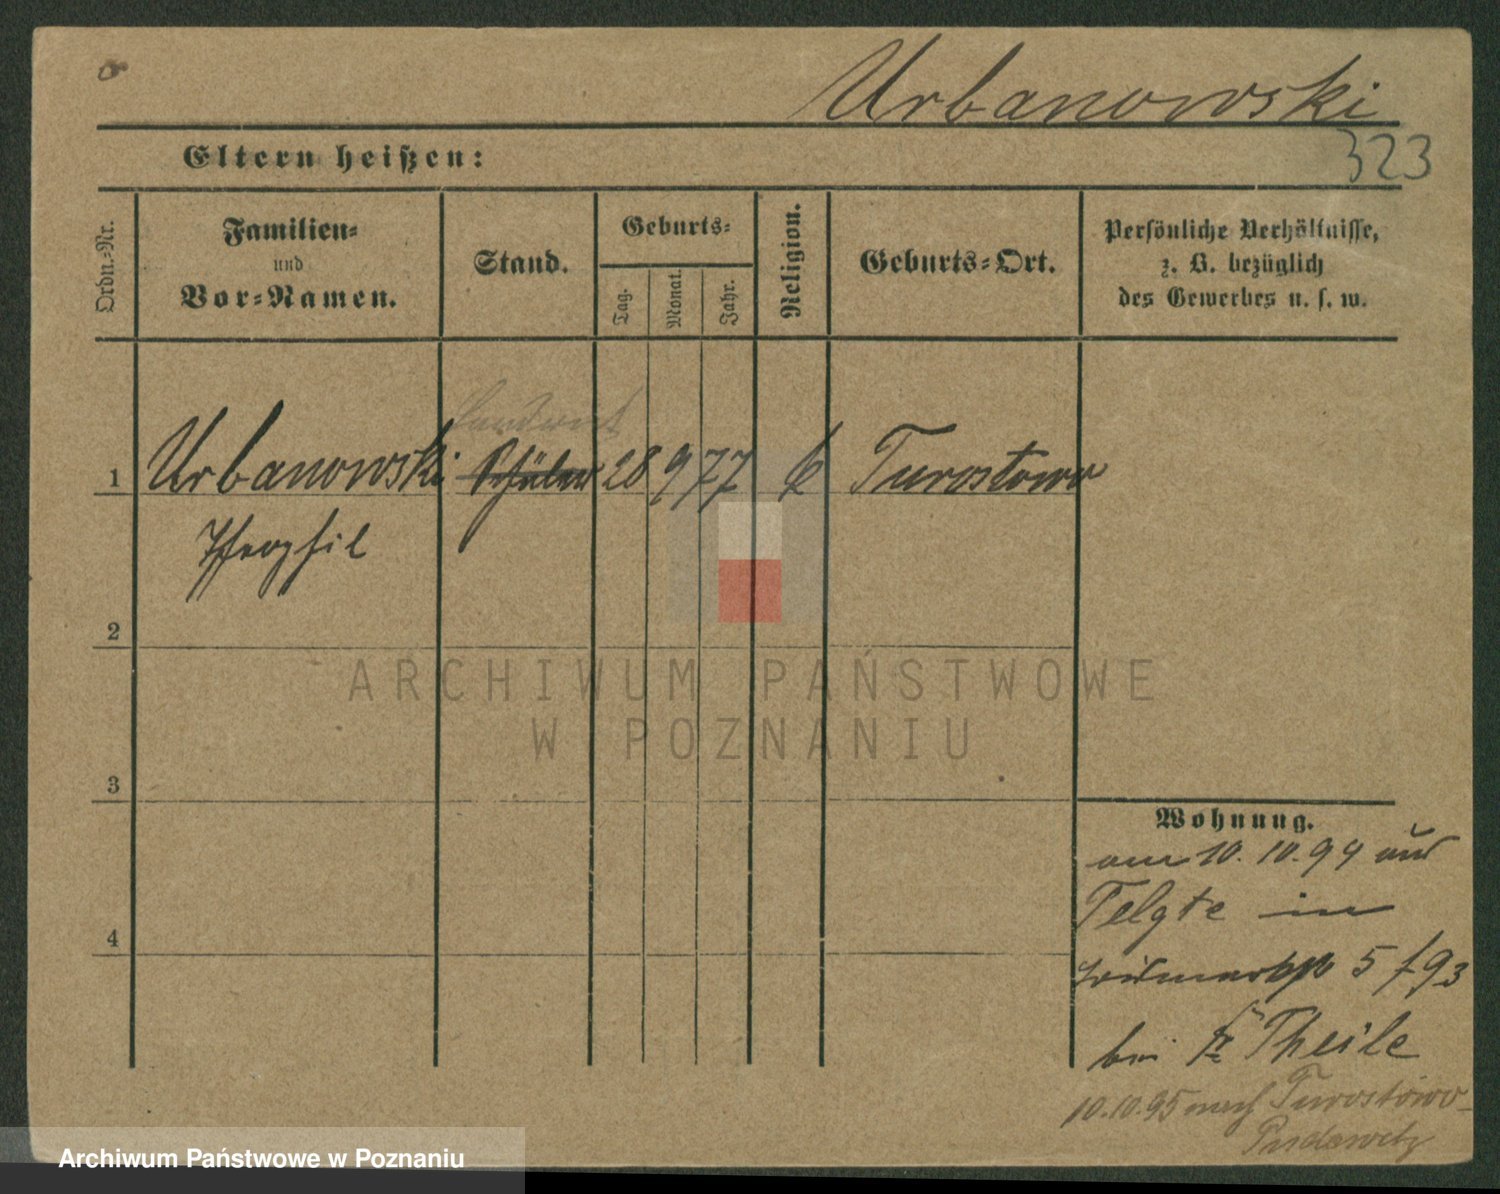 Urbanowski
323
Eltern heißen:
Ordn.-Nr.
Familien-
und
Vor-Namen.
Stand.
Geburts-
Tag.
Monat.
Jahr.
Religion.
Geburts-Ort.
Persönliche Verhältnisse,
z. B. bezüglich
des Gewerbes u. s. w.
Landwirt
1 Urbanowski Schüler 28 9 77 k Turostowo
Theophil
2
ARCHIWUM PAŃSTWOWE
W POZNANIU
3
Wohnung.
am 10.10.94 aus
Telgte in
4
5 / 93
bei Fr Theile
10.10.95 nach Turostowo
Pudewitz
Archiwum Państwowe w Poznaniu